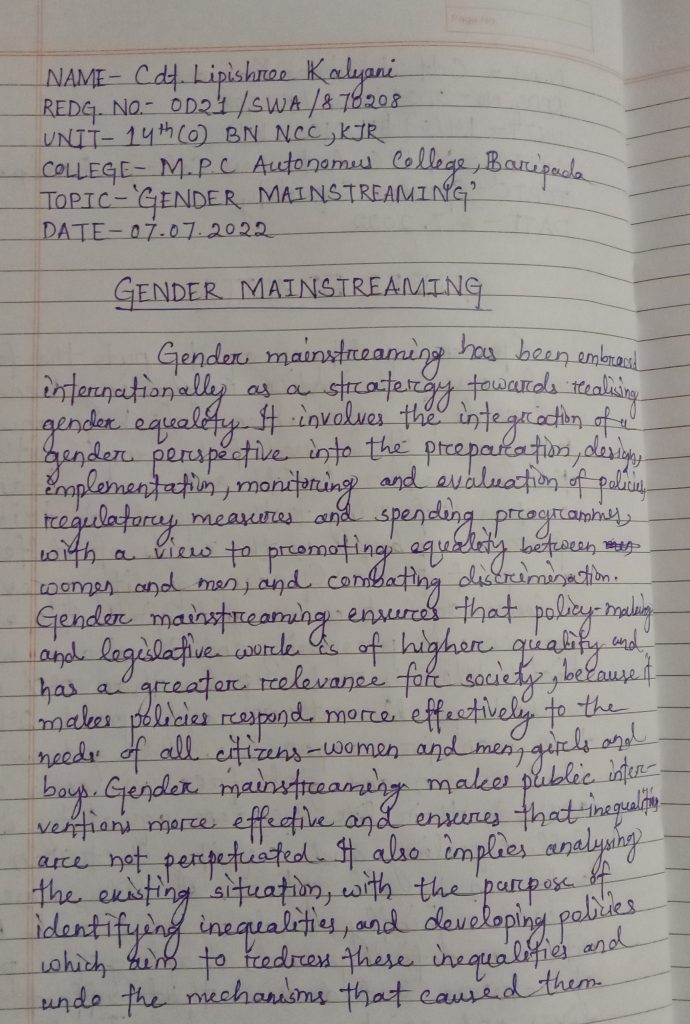 Page No.
NAME- Cdt. Lipishree Kalyani
REDG. NO.- OD21/SWA/878208
UNIT- 14th (O) BN NCC, KJR
COLLEGE- M.P.C Autonomus College, Baripada
TOPIC- 'GENDER MAINSTREAMING'
DATE- 07.07.2022
GENDER MAINSTREAMING
Gender mainstreaming has been embraced
internationally as a stratergy towards realising
gender equality. It involves the integration of a
gender perspective into the preparation, design,
implementation, monitoring and evaluation of policies,
regulatory measures and spending programmes,
with a view to promoting equality between
women and men, and combating discrimination.
Gender mainstreaming ensures that policy-making
and legislative work is of higher quality and
has a greater relevance for society, because it
makes policies respond more effectively to the
needs of all citizens-women and men, girls and
boys. Gender mainstreaming makes public inter-
ventions more effective and ensures that inequalities
are not perpetuated. It also implies analysing
the existing situation, with the purpose of
identifying inequalities, and developing policies
which aim to redress these inequalities and
undo the mechanisms that caused them.